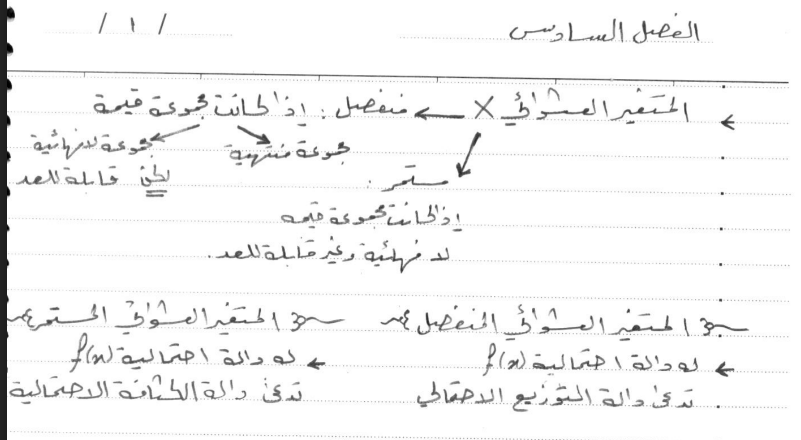 الفصل السادس
/ ١ /
← المتغير العشوائي X ← منفصل : إذا كانت مجموعة قيمة
مجموعة منتهية
مجموعة لا نهائية
لكن قابلة للعد
مستمر :
إذا كانت مجموعة قيمه
لا نهائية وغير قابلة للعد .
المتغير العشوائي المنفصل
← له دالة احتمالية f(x)
تدعى دالة التوزيع الاحتمالي .
المتغير العشوائي المستمر
← له دالة احتمالية f(x)
تدعى دالة الكثافة الاحتمالية